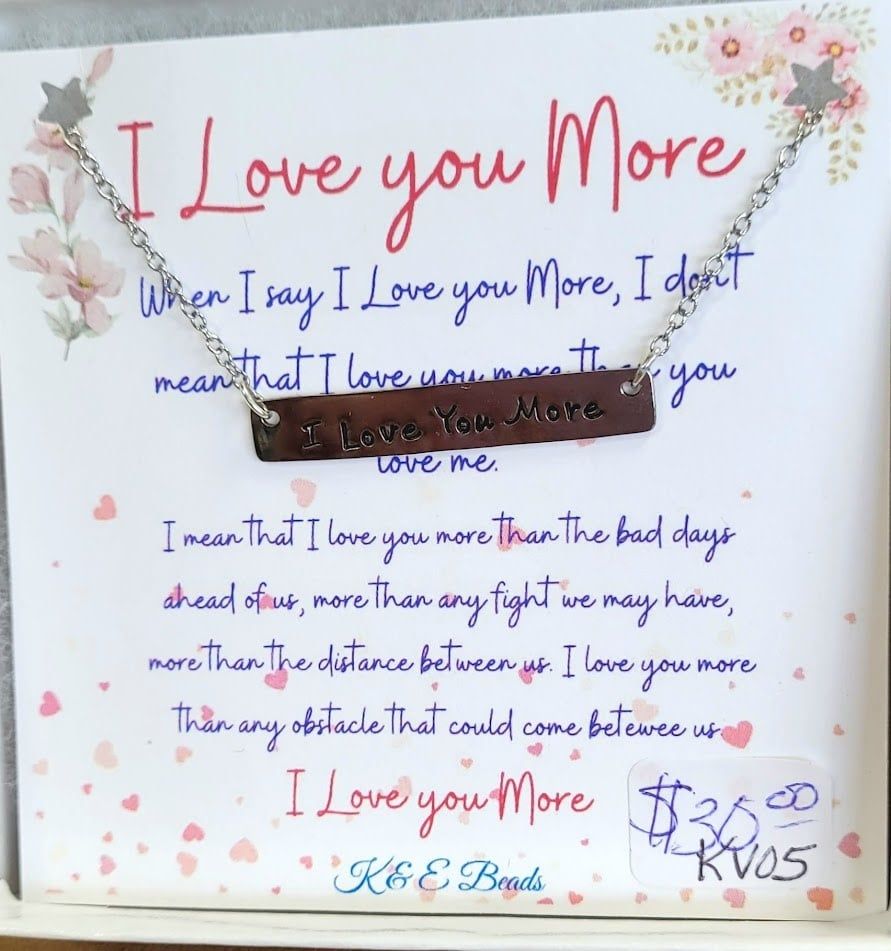 I Love you More
When I say I Love you More, I don't
mean that I love you more than you
I Love You More
love me.
I mean that I love you more than the bad days
ahead of us, more than any fight we may have,
more than the distance between us. I love you more
than any obstacle that could come betewee us.
I Love you More
$30.00
KV05
K& E Beads